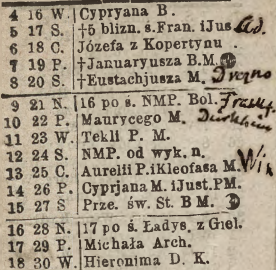 4 16 W. Cypryana B.
5 17 S. †5 blizn. s. Fran. i Jus
6 18 C. Józefa z Kopertynu
7 19 P. †Januaryusza B. M.
8 20 S. †Eustachjusza M.
9 21 N. 16 po ś. NMP. Bol.
10 22 P. Maurycego M.
11 23 W. Tekli P. M.
12 24 S. NMP. od wyk. n.
13 25 C. Aurelii P. i Kleofasa M.
14 26 P. Cyprjana M. i Just. PM.
15 27 S Prze. św. St. B M.
16 28 N. 17 po ś. Ładys. z Giel.
17 29 P. Michała Arch.
18 30 W. Hieronima D. K.